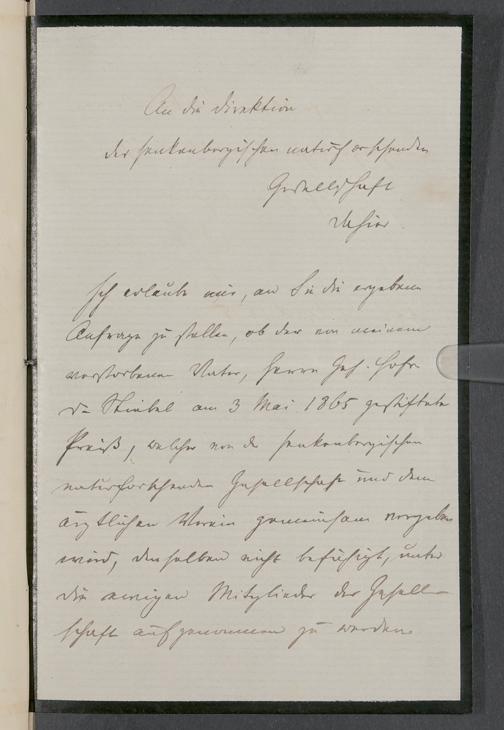 An die Direktion
der Senkenbergischen naturforschenden
Gesellschaft
dahier
Ich erlaube mir, an Sie die ergebene
Anfrage zu stellen, ob der von meinem
verstorbenen Vater, Herrn Geh. Hofr.
Dr. Stiebel am 3 Mai 1865 gestiftete
Preiß, welcher von der Senkenbergischen
naturforschenden Gesellschaft und dem
ärztlichen Verein gemeinsam vergeben
wird, denselben nicht befähigt, unter
die ewigen Mitglieder der Gesell-
schaft aufgenommen zu werden.